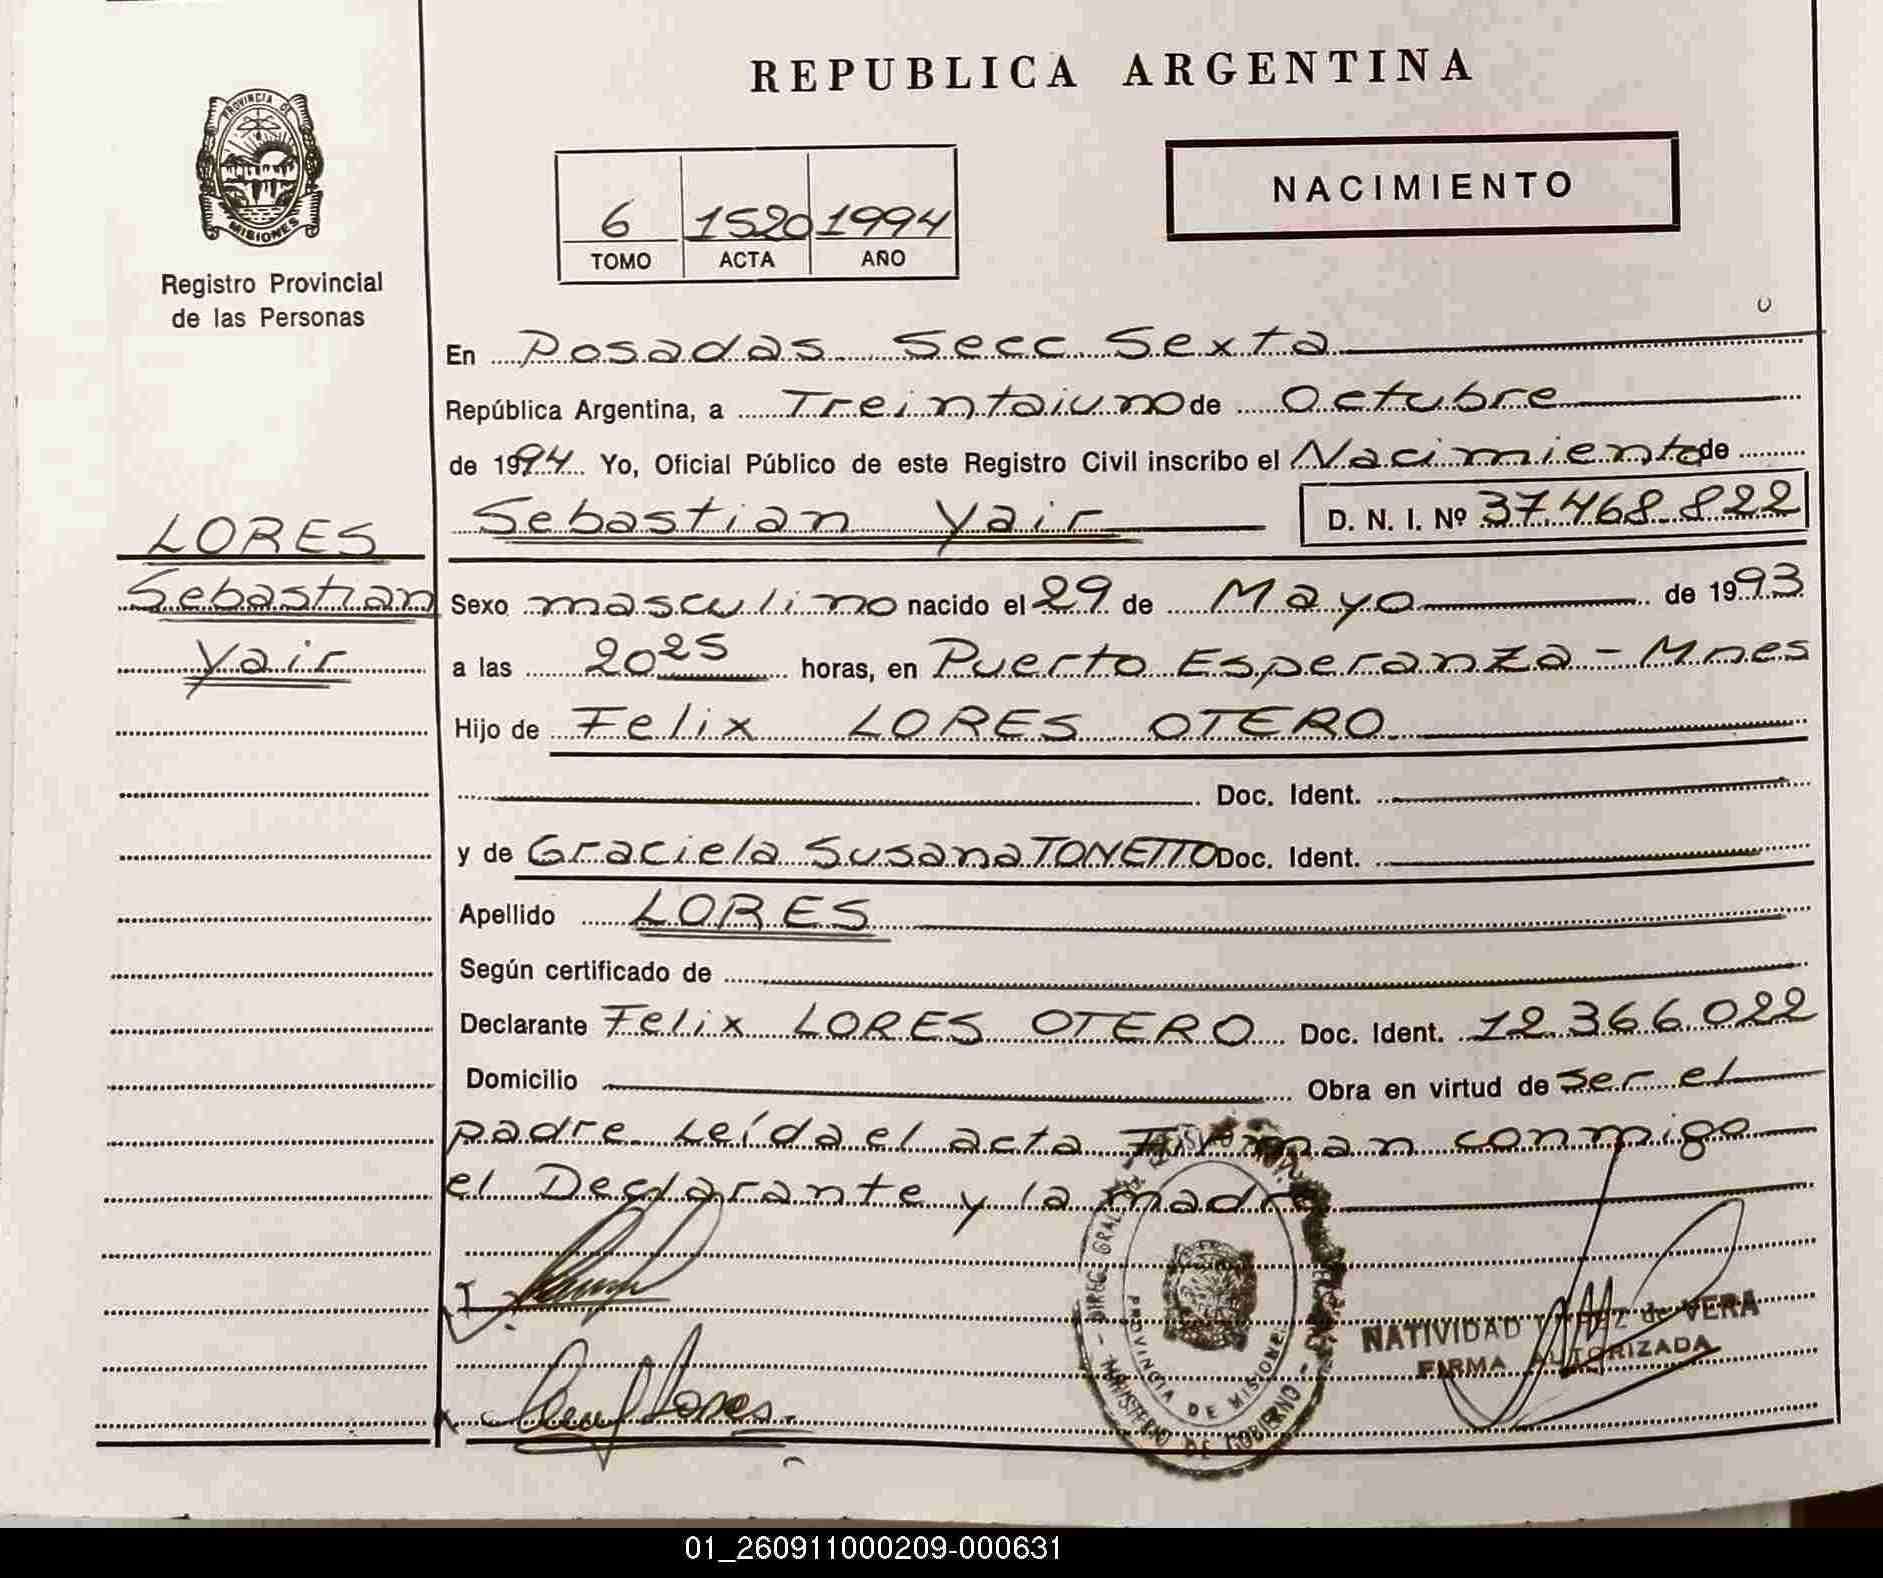 REPUBLICA ARGENTINA
PROVINCIA DE
MISIONES
Registro Provincial
de las Personas
6 1520 1994
TOMO ACTA AÑO
NACIMIENTO
En Posadas Secc Sexta
República Argentina, a Treintaiuno de Octubre
de 1994 Yo, Oficial Público de este Registro Civil inscribo el Nacimiento de
Sebastian Yair D. N. I. Nº 37.468.822
LORES
Sebastian
Yair
Sexo masculino nacido el 29 de Mayo de 1993
a las 20 25 horas, en Puerto Esperanza - Mnes
Hijo de Felix LORES OTERO
Doc. Ident.
y de Graciela Susana TONETTO Doc. Ident.
Apellido LORES
Según certificado de
Declarante Felix LORES OTERO Doc. Ident. 12.366.022
Domicilio Obra en virtud de ser el
padre Leída el acta Firman conmigo
el Declarante y la madre
DIREC. GRAL.
PROVINCIA DE MISIONES
MINISTERIO DE GOBIERNO
NATIVIDAD de VERA
FIRMA AUTORIZADA
01_260911000209-000631